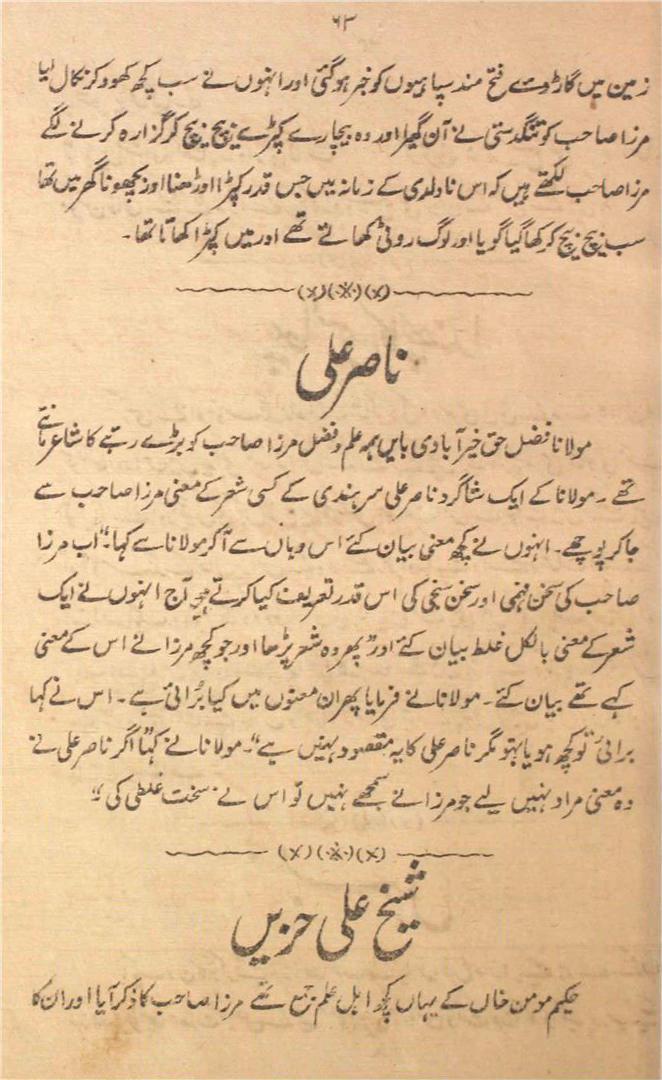 ۶۳
زمین میں گاڑدئے فتح مند سپاہیوں کو خبر ہوگئی اور انہوں نے سب کچھ کھود کر نکال لیا
مرزا صاحب کو تنگدستی نے آن گھیرا اور وہ بیچارے کپڑے بیچ بیچ کر گزارہ کرنے لگے
مرزا صاحب لکھتے ہیں کہ اس ناداری کے زمانہ میں جس قدر کپڑا اوڑھنا اور بچھونا گھر میں تھا
سب بیچ بیچ کر کھا گیا گویا اور لوگ روٹی کھاتے تھے اور میں کپڑا کھاتا تھا۔
(×)(※)(×)
ناصر علی
مولانا فضل حق خیرآبادی بایں ہمہ علم و فضل مرزا صاحب کو بڑے رتبے کا شاعر مانتے
تھے۔ مولانا کے ایک شاگرد ناصر علی سرہندی کے کسی شعر کے معنی مرزا صاحب سے
جاکر پوچھے۔ انہوں نے کچھ معنی بیان کئے اس وہاں سے آکر مولانا سے کہا۔ "اب مرزا
صاحب کی سخن فہمی اور سخن سنجی کی اس قدر تعریف کیا کرتے ہیں آج انہوں نے ایک
شعر کے معنی بالکل غلط بیان کئے اور" پھر وہ شعر پڑھا اور جو کچھ مرزا نے اس کے معنی
کہے تھے بیان کئے۔ مولانا نے فرمایا پھر ان معنوں میں کیا بُرائی ہے۔ اس نے کہا
برائی "تو کچھ ہو یا نہو مگر ناصر علی کا یہ مقصود نہیں ہے"۔ مولانا نے کہا "اگر ناصر علی نے
وہ معنی مراد نہیں لیے جو مرزا نے سمجھے ہیں تو اس نے سخت غلطی کی"
(×)(※)(×)
شیخ علی حزیں
حکیم مومن خاں کے یہاں کچھ اہل علم جمع تھے مرزا صاحب کا ذکر آیا اور ان کا